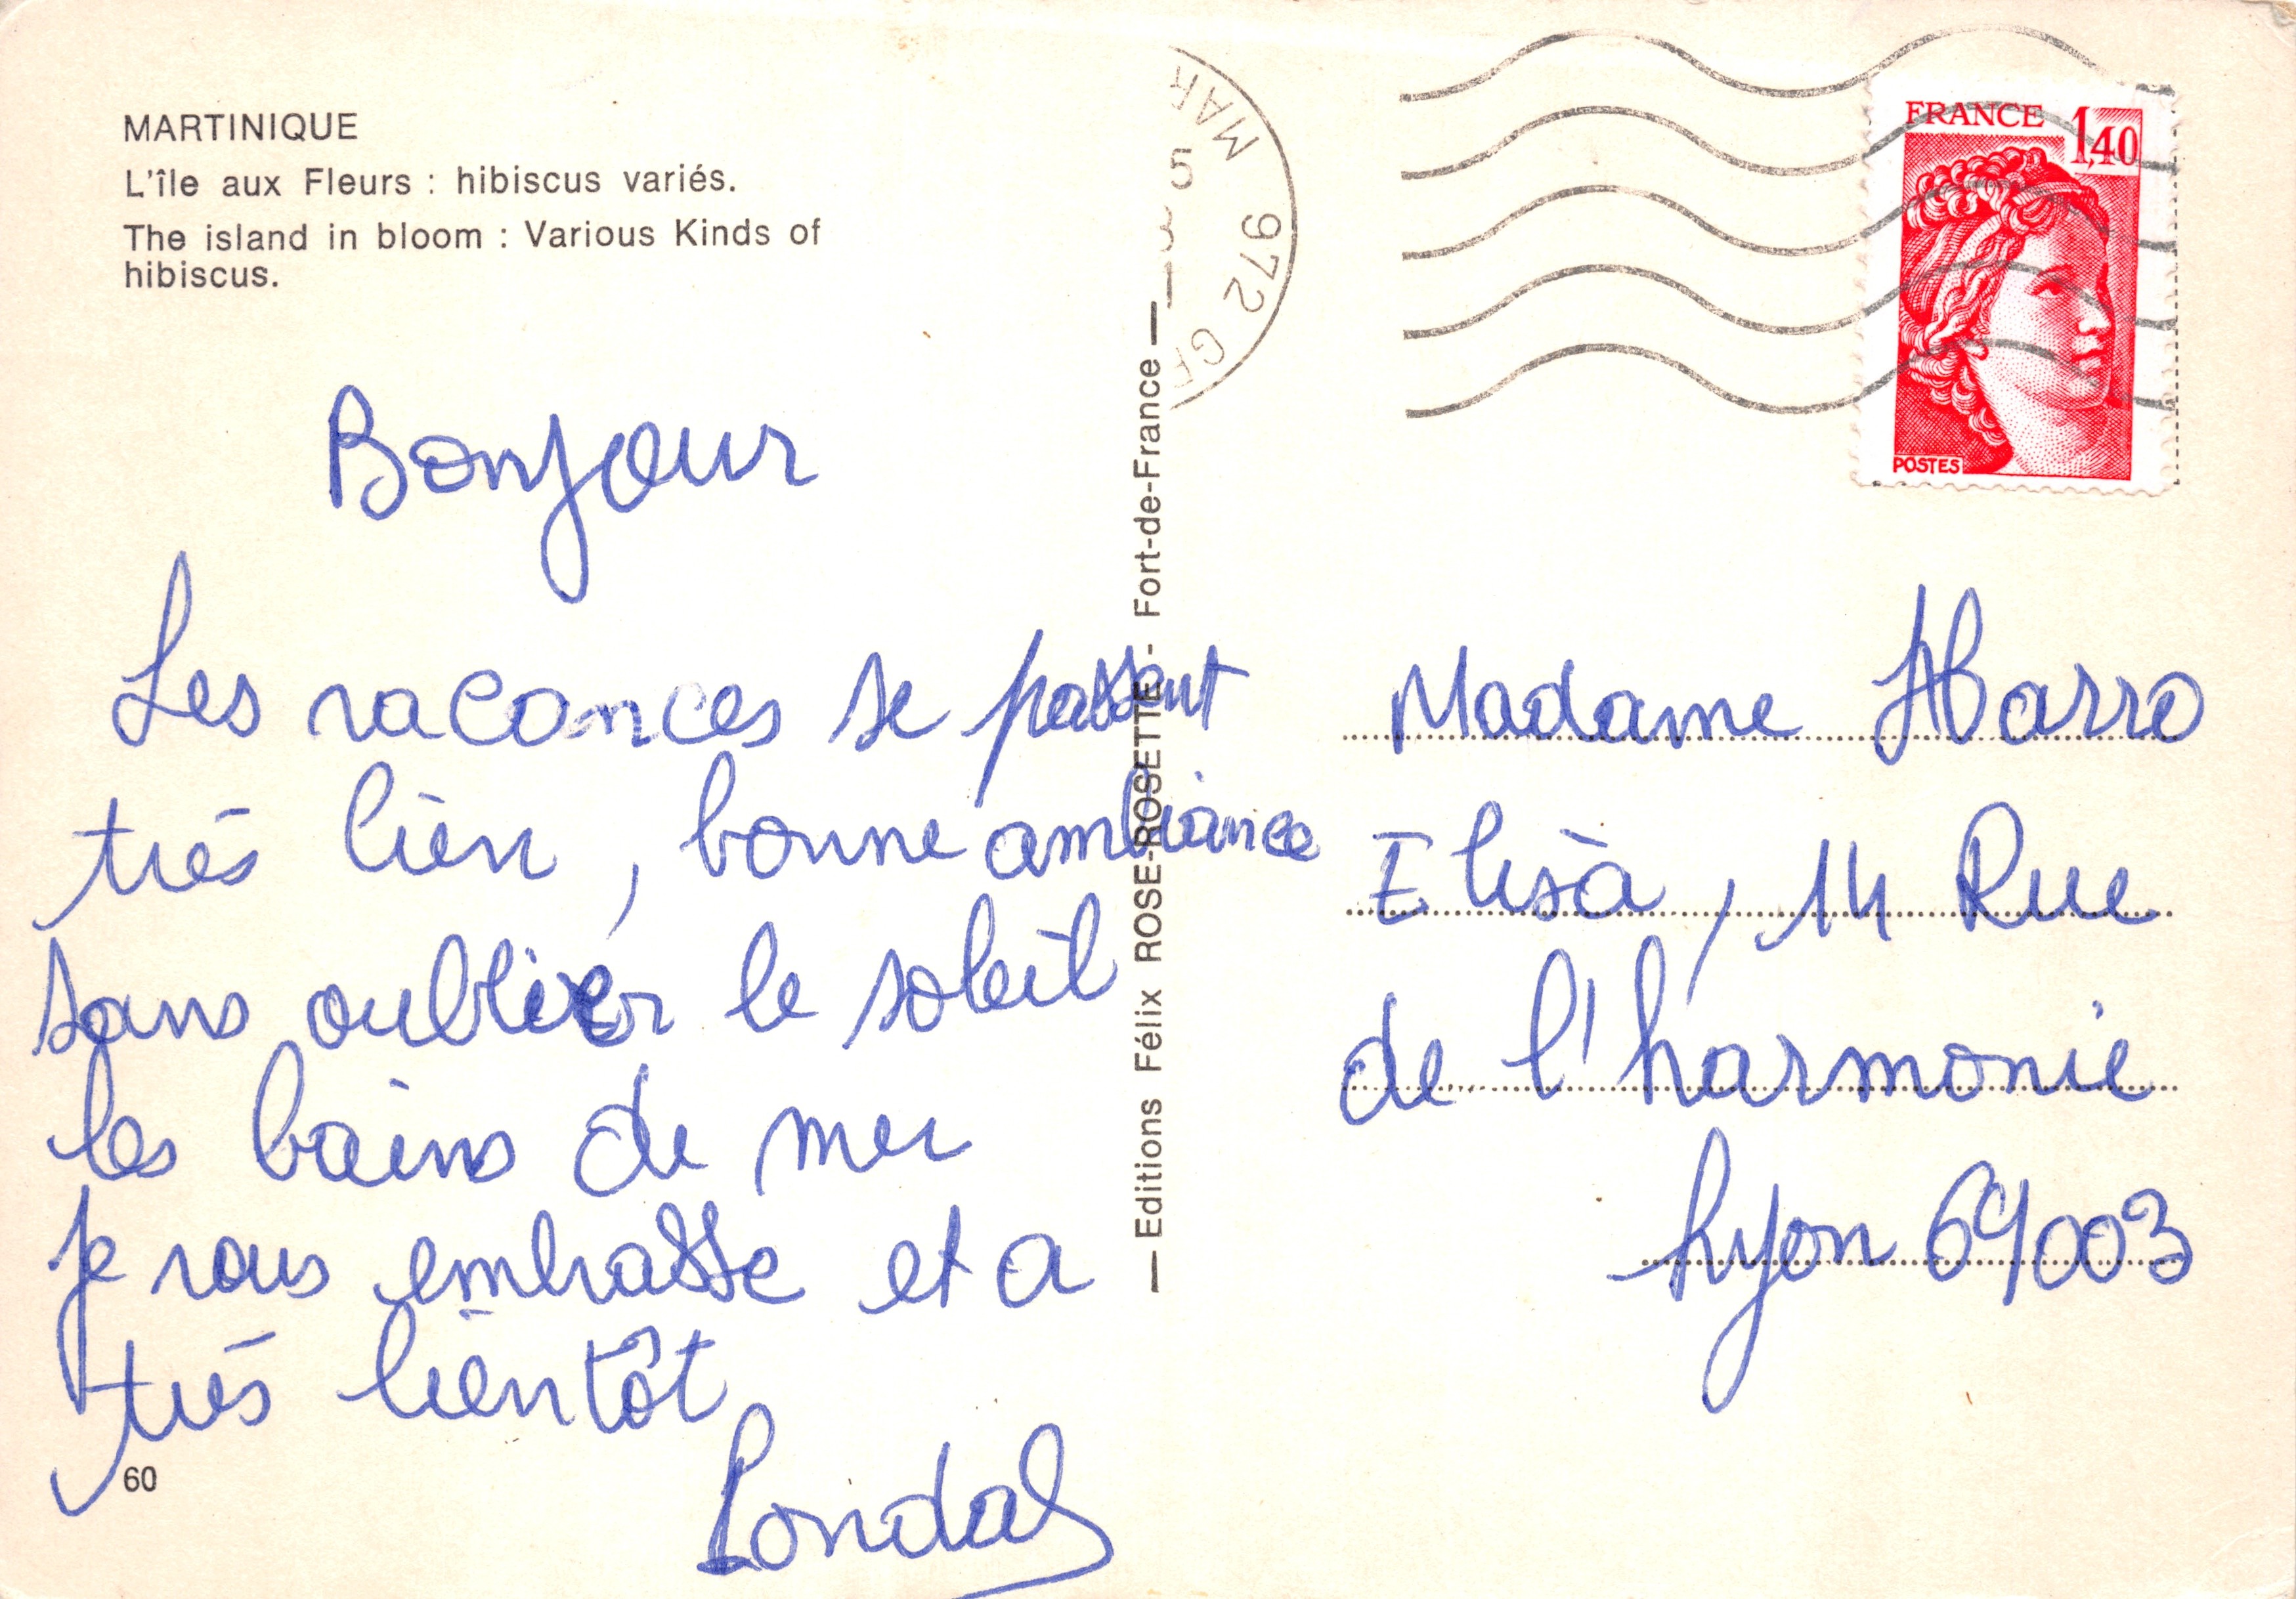 MARTINIQUE
L'île aux Fleurs : hibiscus variés.
The island in bloom : Various Kinds of
hibiscus.
Bonjour
Les vacances se passent
très bien, bonne ambiance
sans oublier le soleil
les bains de mer
je vous embrasse et a
très bientôt
60
— Editions Félix ROSE-ROSETTE - Fort-de-France —
MAR
5
972
FRANCE 1,40
POSTES
Madame
Elisa, 14 Rue
de l'harmonie
Lyon 69003